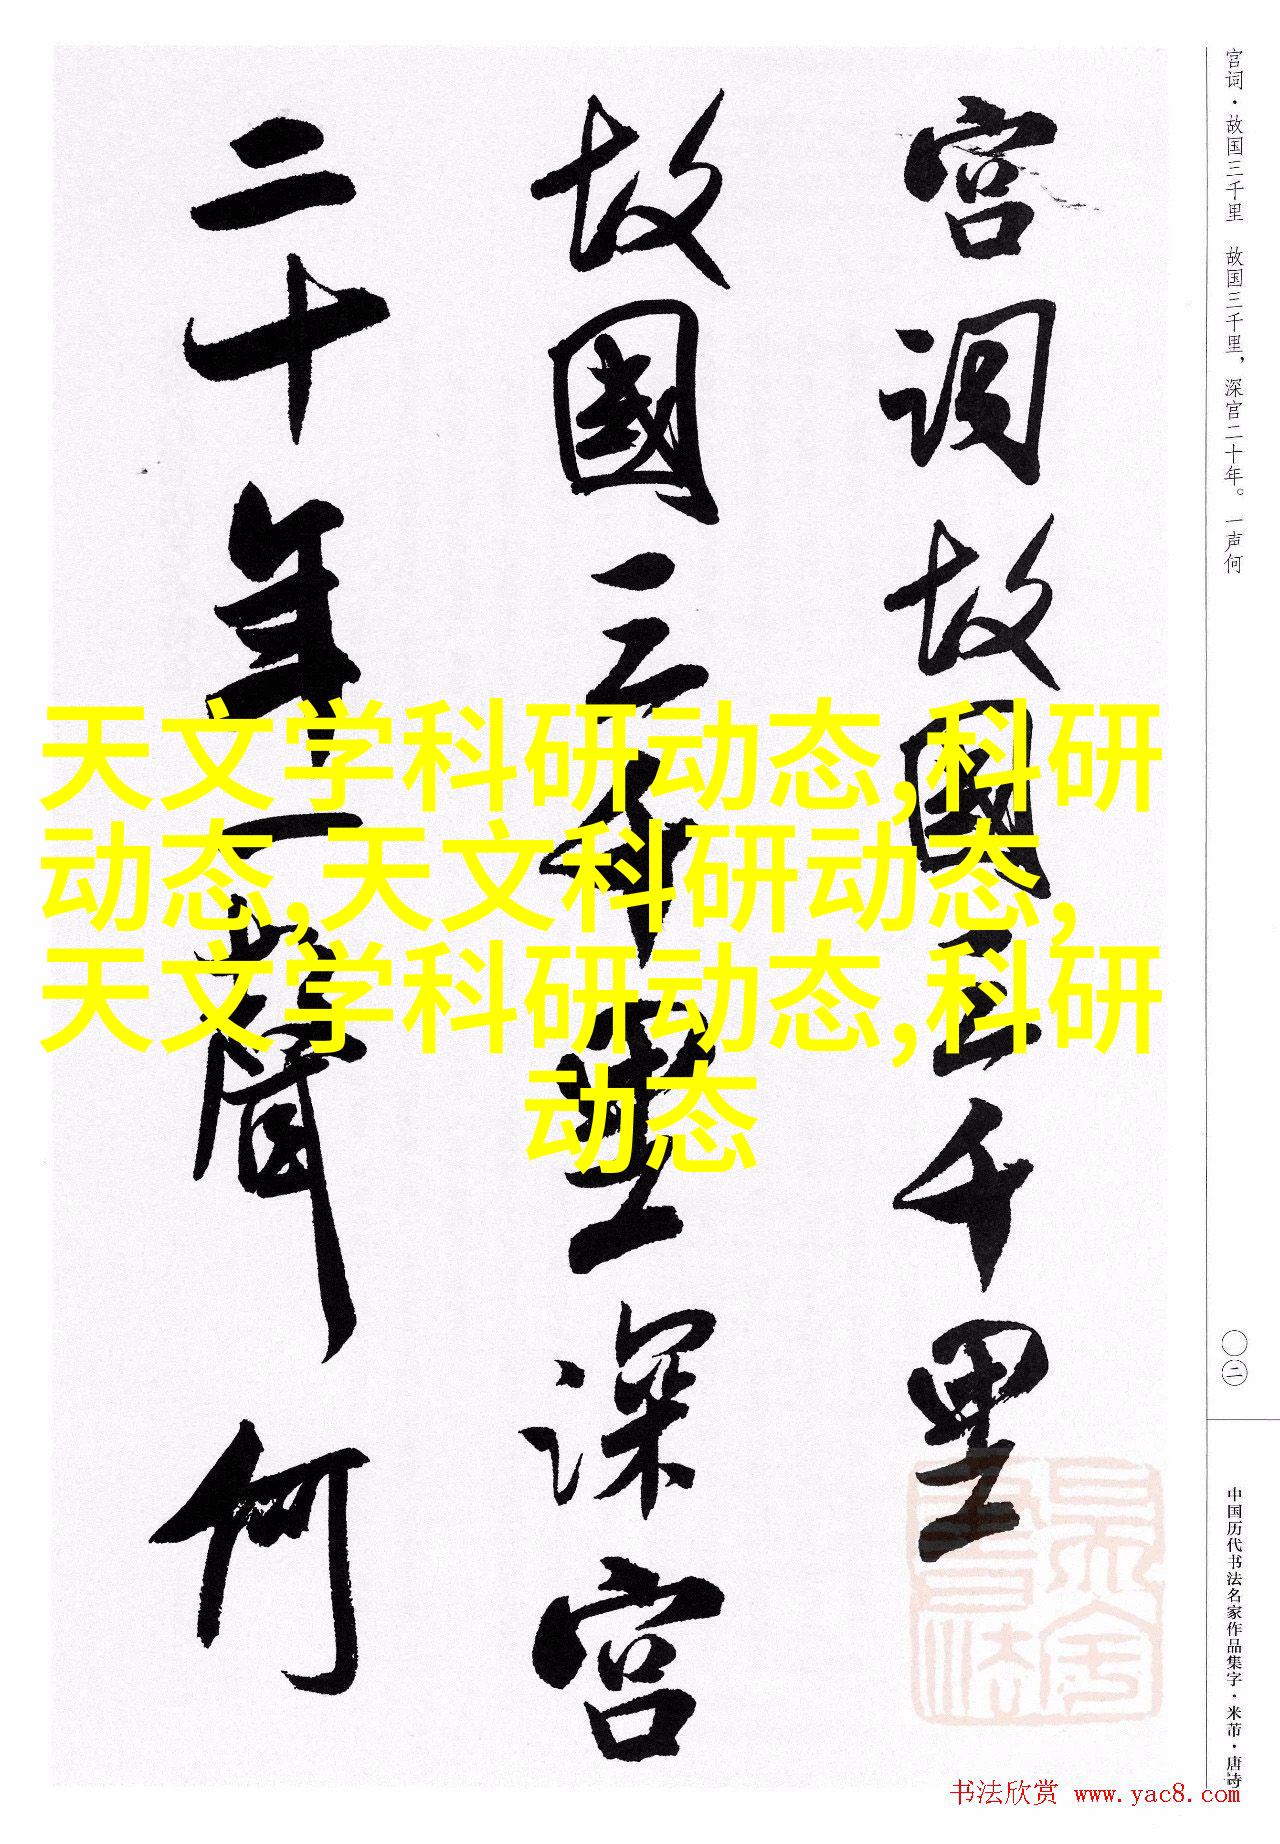 宫词·故国三千里　故国三千里，深宫二十年。一声何
宫词故國三千里
故國三千里深宫
二十年一聲何
天文学科研动态,科研
动态,天文科研动态,
天文学科研动态,科研
动态
〇二
中国历代书法名家作品集字·米芾·唐诗
书法欣赏 www.yac8.com